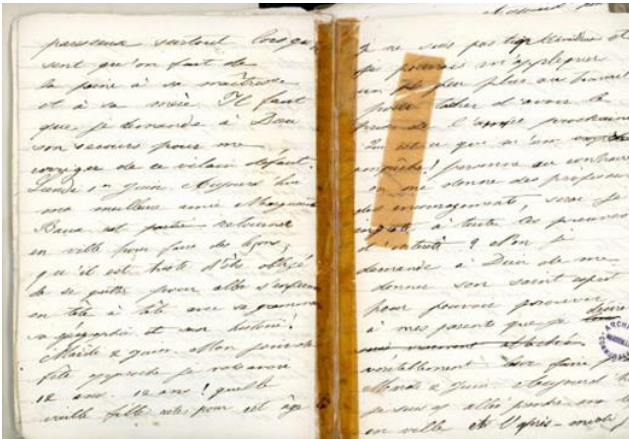 paresseux surtout lorsqu'on
sent qu'on fait de
la peine à sa maîtresse
et à sa mère. Il faut
que je demande à Dieu
son secours pour me
corriger de ce vilain défaut.
Lundi 1er Juin. Aujourd'hui
ma meilleure amie Marguerite
est partie retourner
en ville pour faire des
qu'il est triste d'être obligé
de se quitter pour aller s'enfermer
en tête à tête avec sa grammaire
sa géographie et son histoire!
Mardi 2 Juin. Mon jour de
fête approche je vais avoir
12 ans. 12 ans! quelle
vieille fille
je ne suis pas trop travailleuse et
je pourrais m'appliquer
un peu plus au travail
pour tâcher d'avoir le
l'année prochaine
Qu'est-ce qui m'en
empêche! personne au contraire
on me donne des
des encouragements, serai-je
ingrate à toutes les preuves
d'intérêt? Non je
demande à Dieu de me
donner son saint esprit
pour pouvoir prouver
à mes parents que je désire
véritablement leur faire
Mardi 2 Juin Aujourd'hui
je suis allée prendre
en ville et l'après-midi
ARCHI